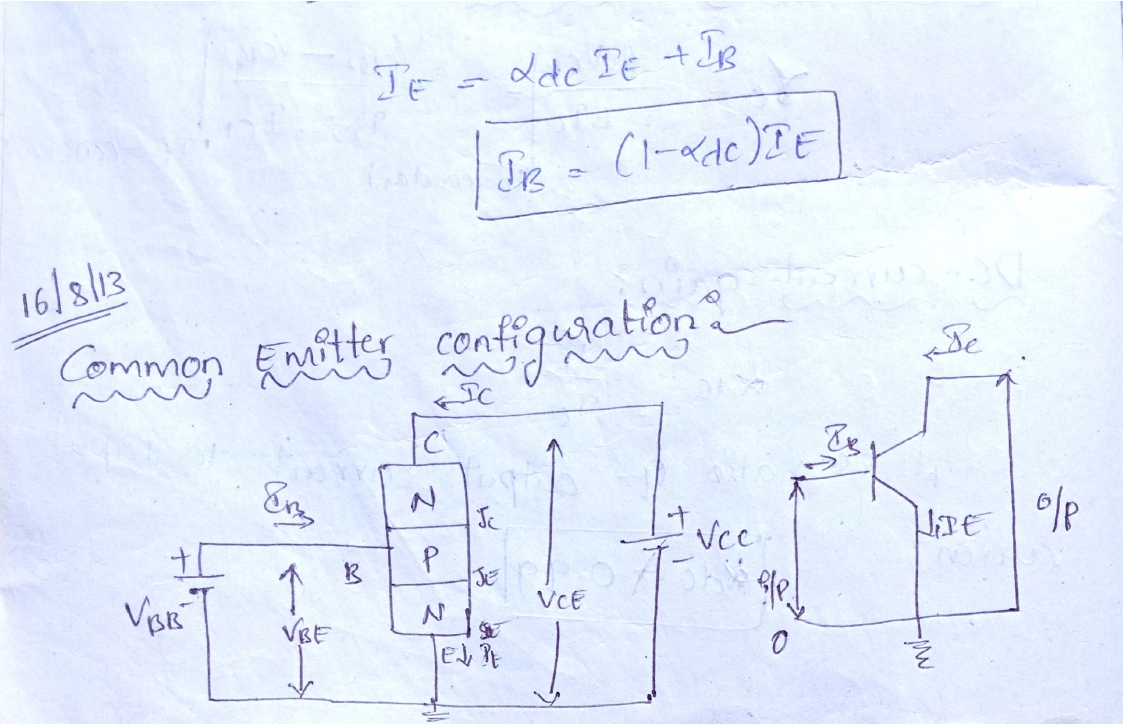 I_E = α_dc I_E + I_B
I_B = (1-α_dc) I_E
16/8/13
Common Emitter configuration:
I_C
C
N
J_C
I_B
P
J_E
B
N
+
V_BB
-
V_BE
E
I_E
V_CE
+
V_CC
-
I_C
I_B
I_E
i/p
o/p
0